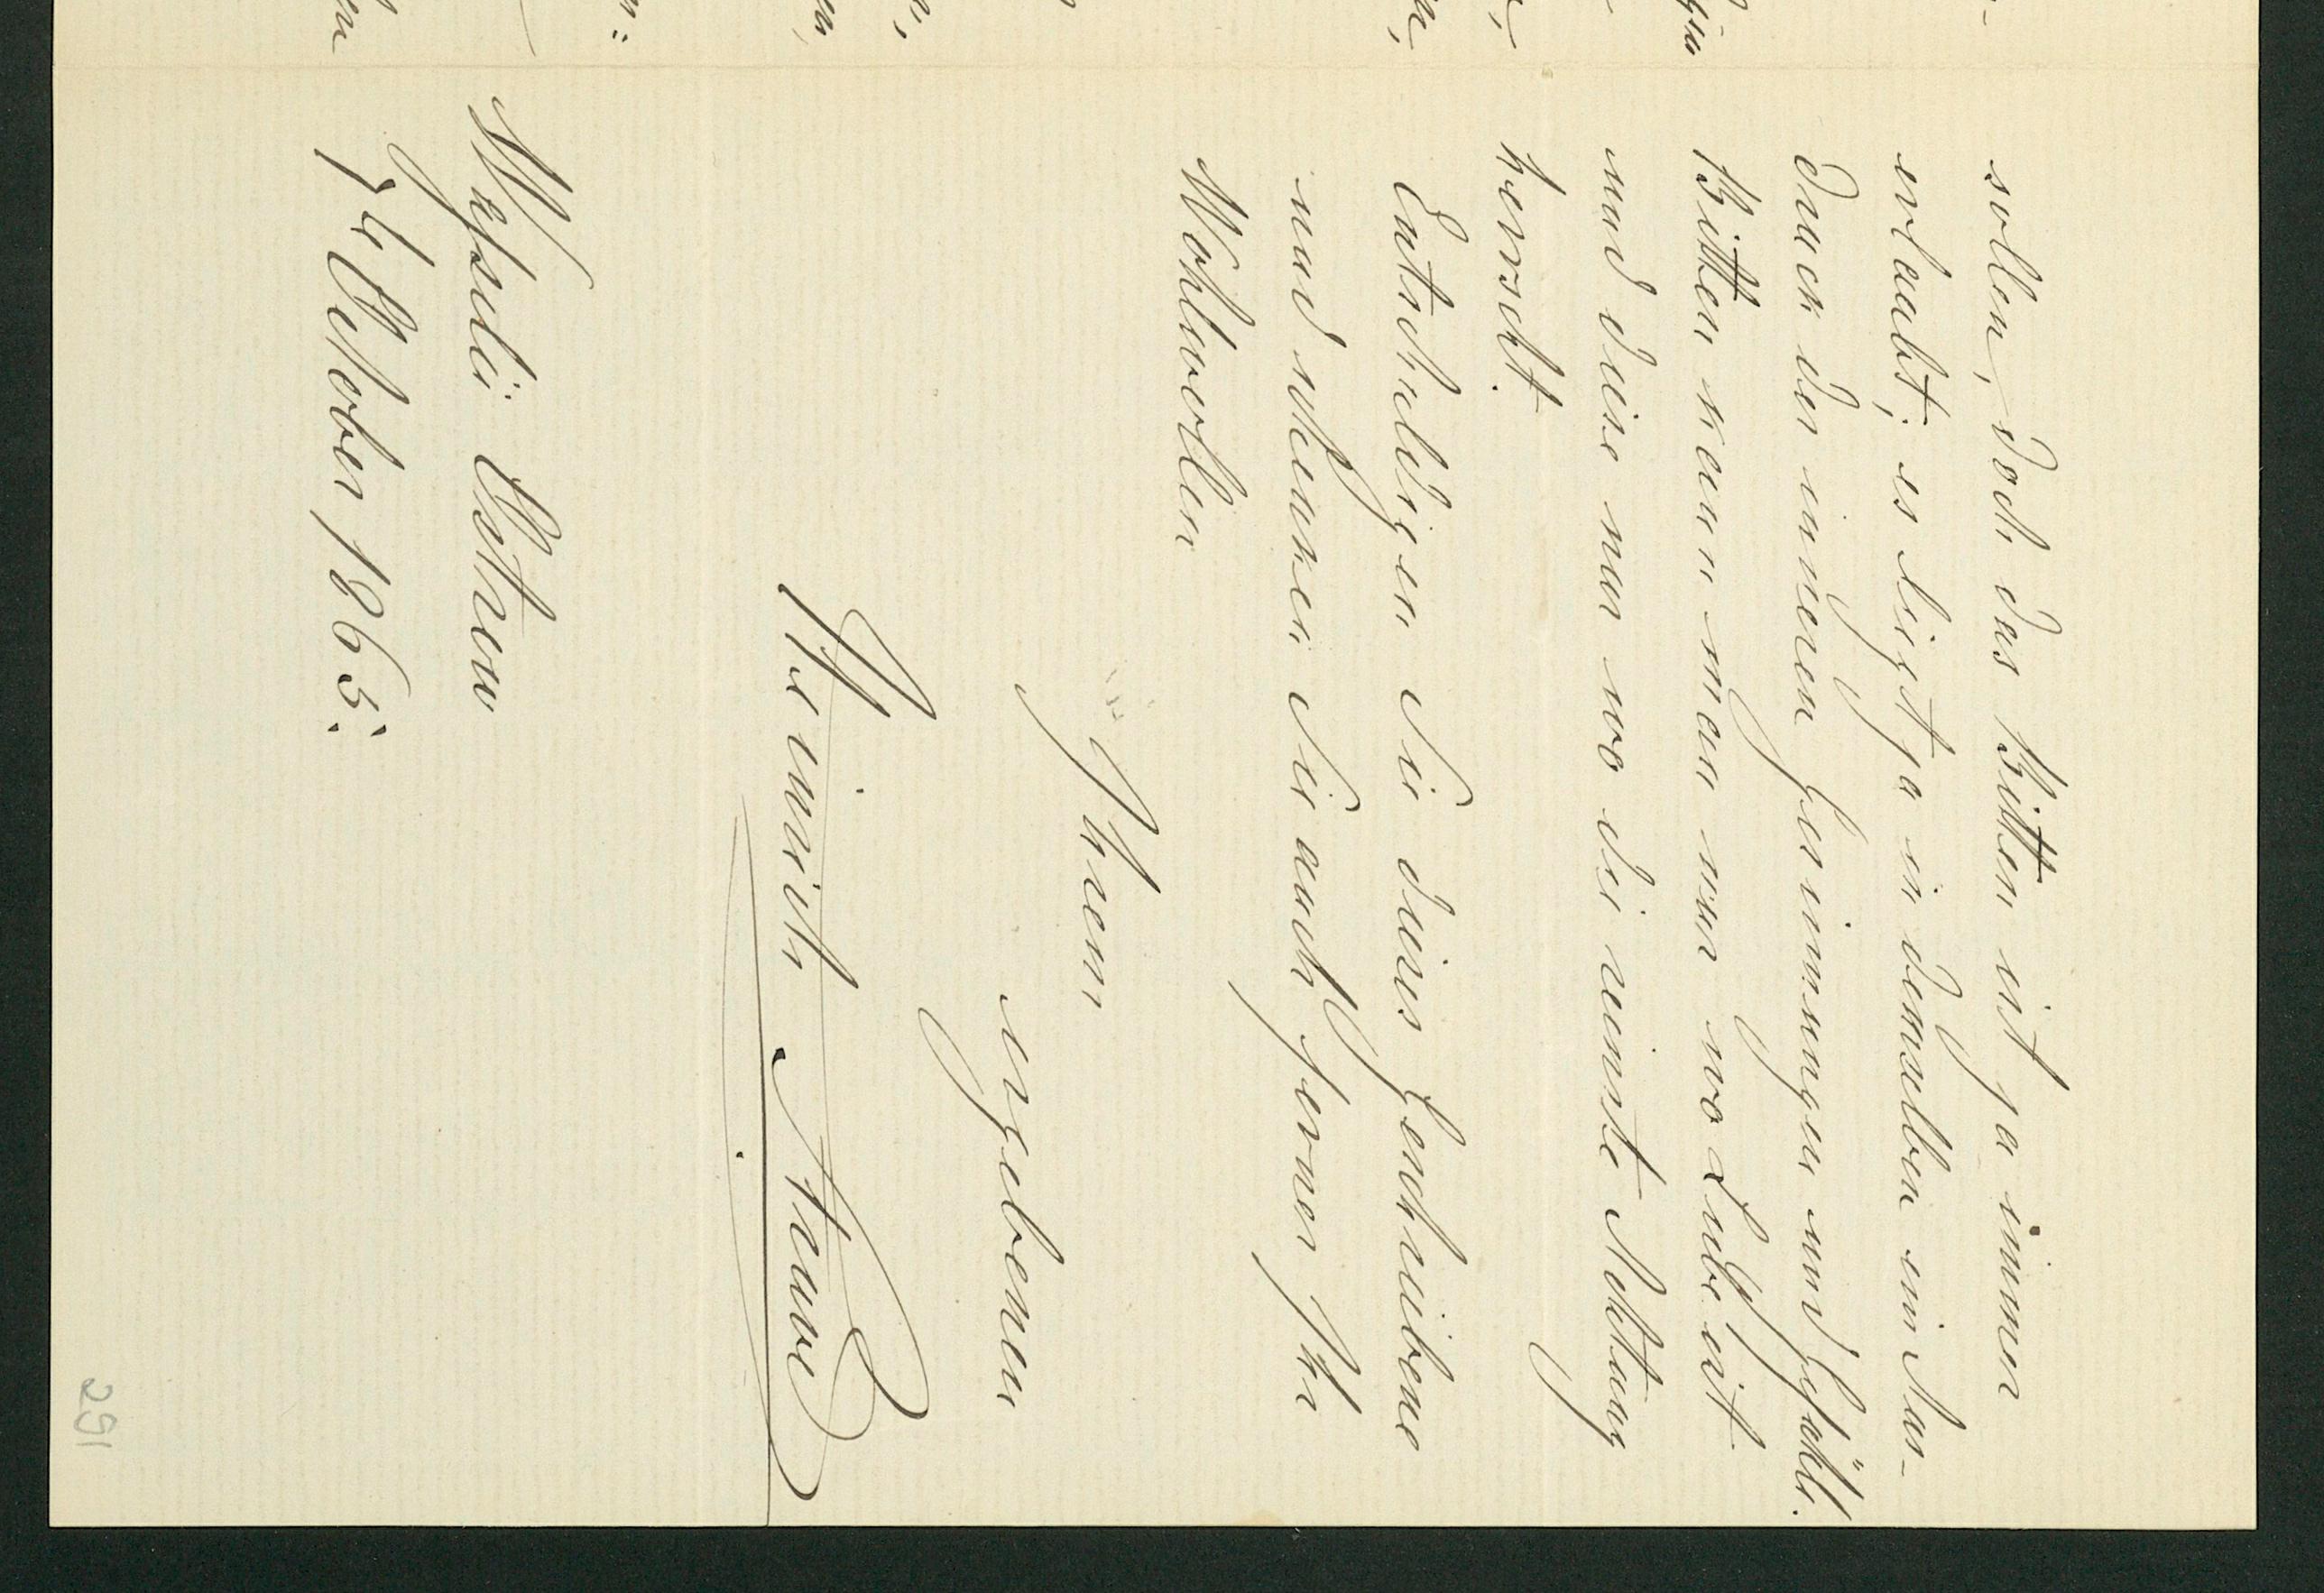 sollen, doch das Bitten ist ja immer
erlaubt; es liegt ja in demselben ein Aus-
druck der inneren Gesinnungen und Gefühle.
Bitten kann man nur wo Liebe ist
und diese nur wo die reinste Achtung
herrscht.
Entschuldigen Sie dieses Geschriebene
und schenken Sie auch ferner Ihr
Wohlwollen
Ihrem
ergebenen
Heinrich
Ostrau
7t October 1865.
291